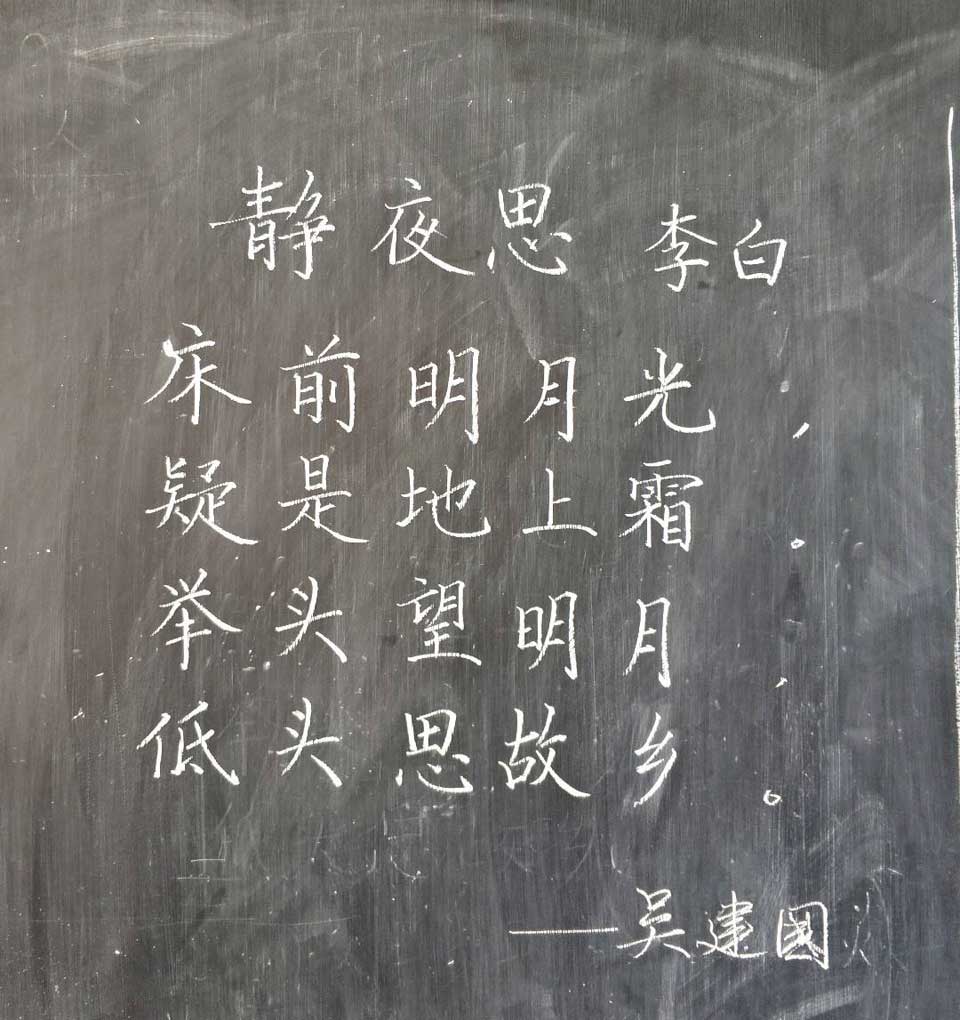 静夜思 李白
床前明月光，
疑是地上霜。
举头望明月，
低头思故乡。
——吴建國